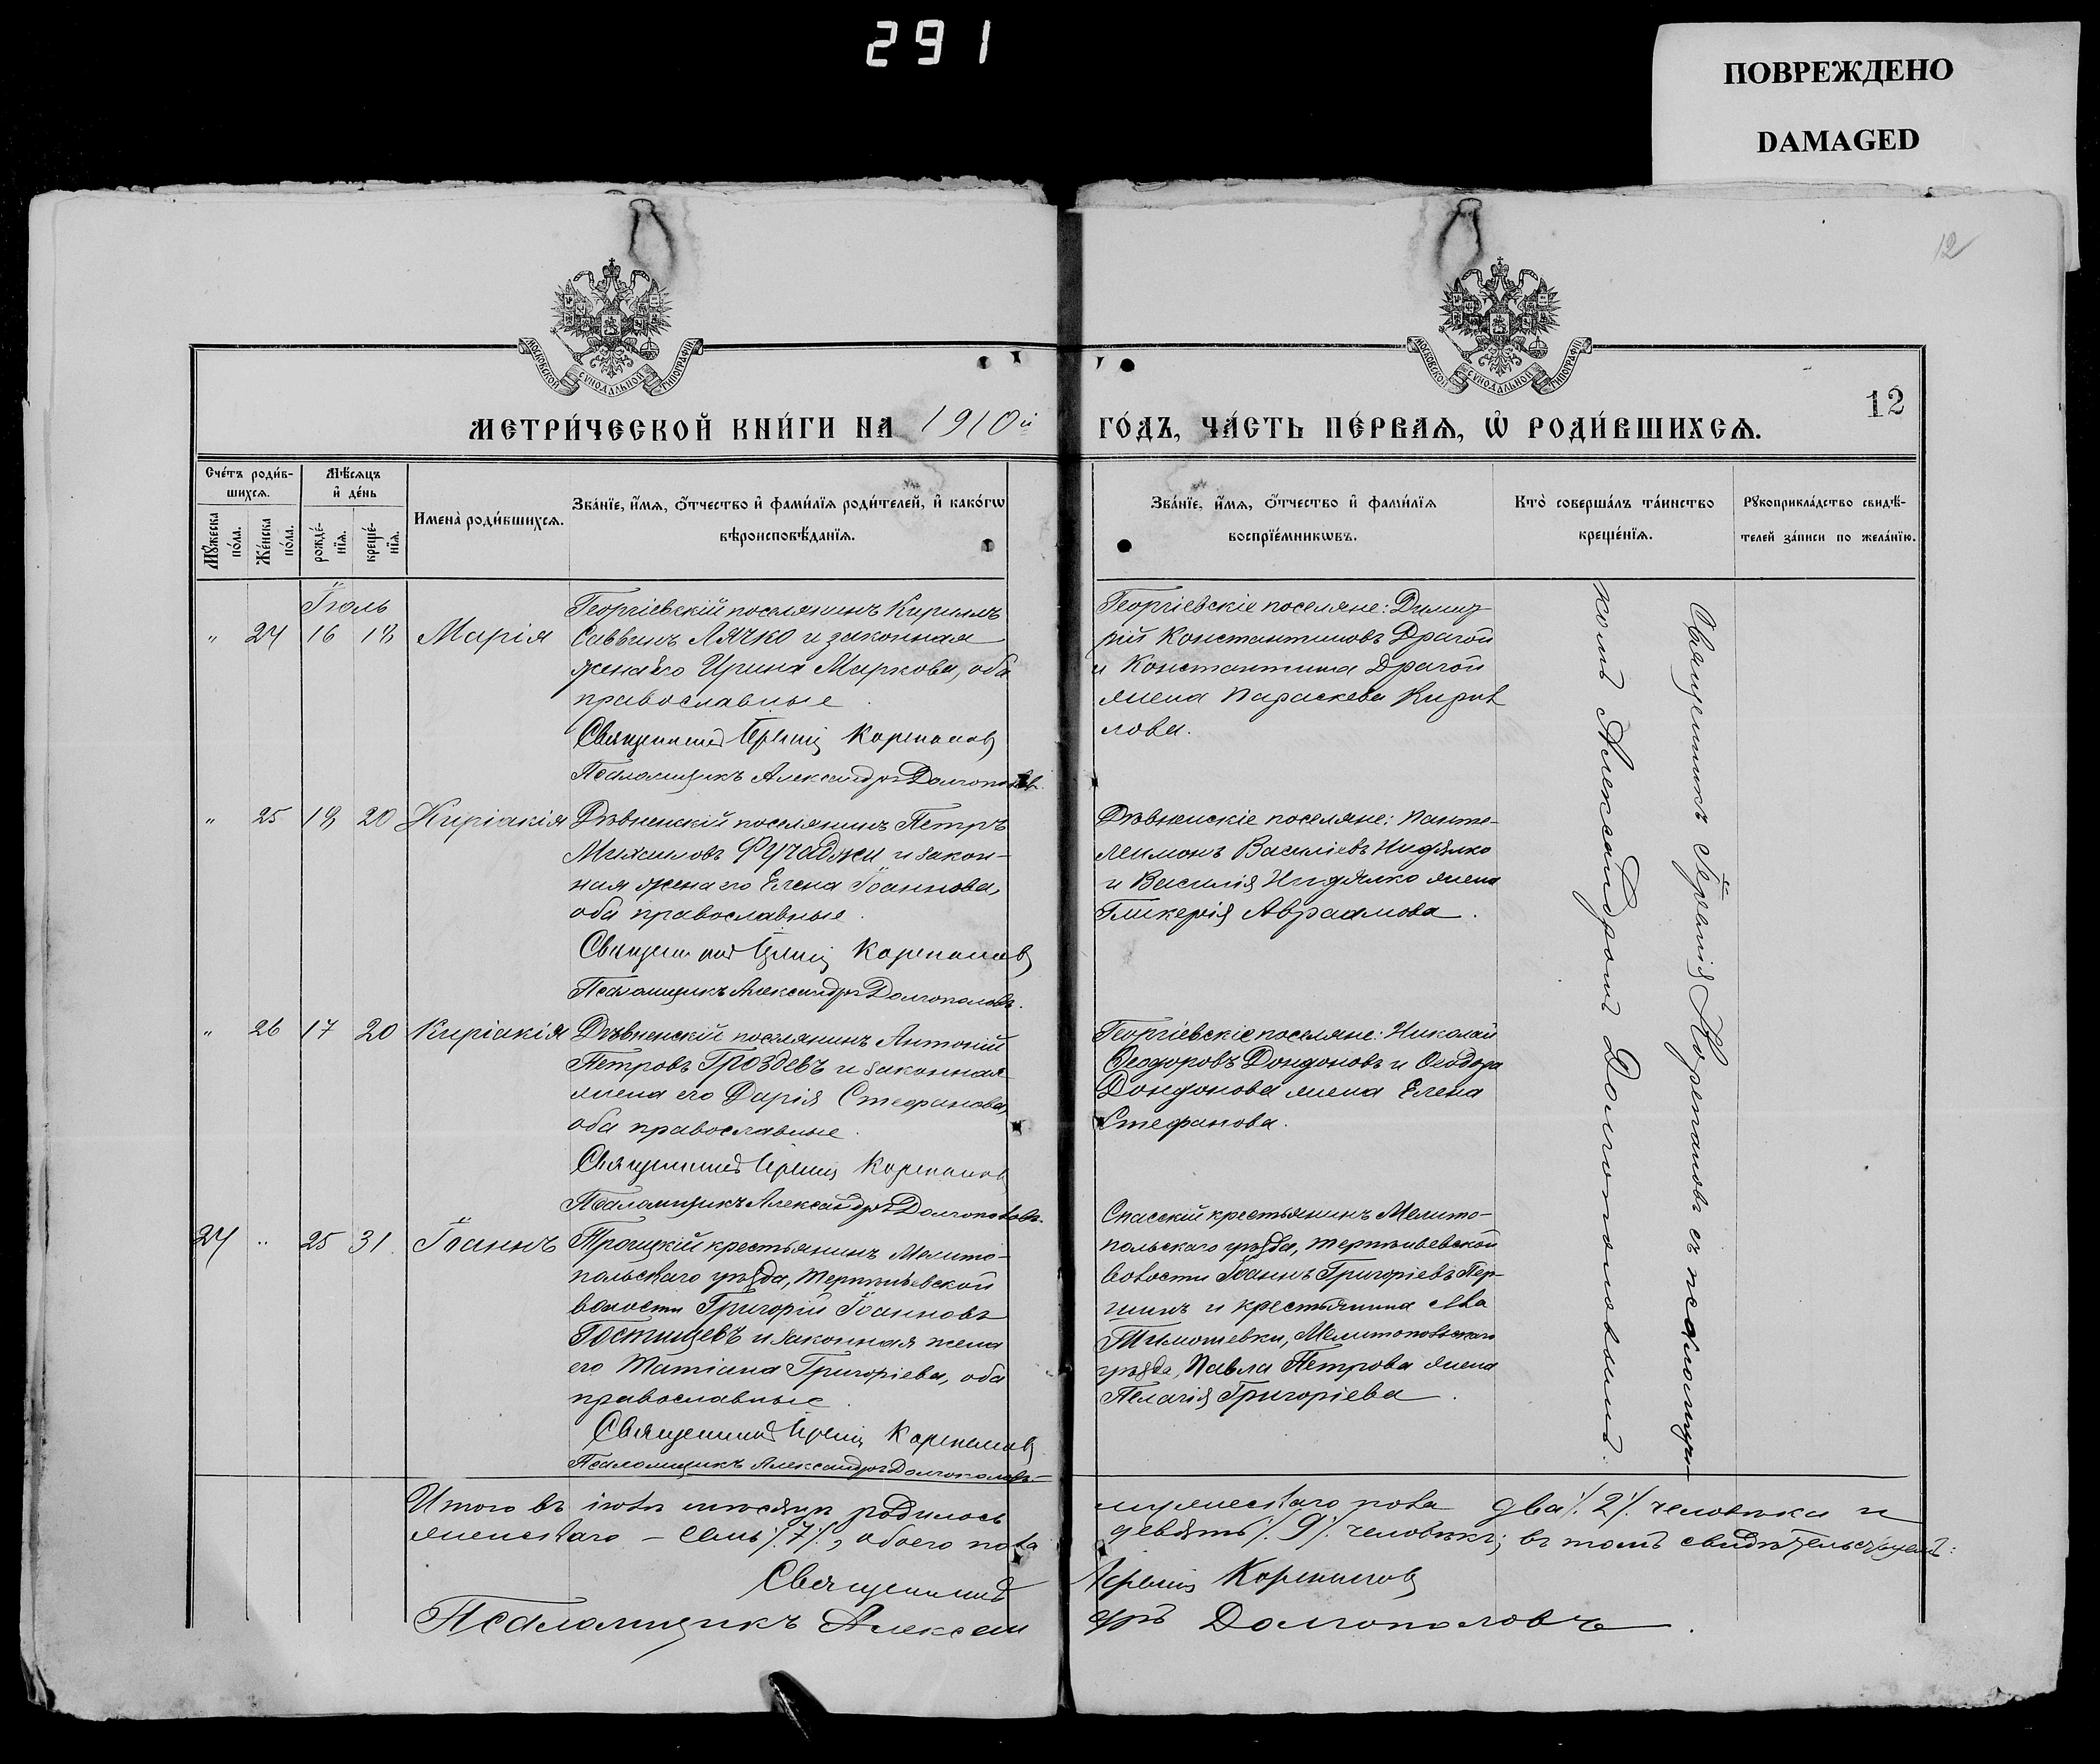 291
ПОВРЕЖДЕНО
DAMAGED
12
МОСКОВСКОЙ СѴНОДАЛЬНОЙ ТИПОГРАФІИ
МОСКОВСКОЙ СѴНОДАЛЬНОЙ ТИПОГРАФІИ
12
МЕТРИ́ЧЕСКОЙ КНИ́ГИ НА 1910й ГО́ДЪ, ЧА́СТЬ ПЕ́РВАѦ, Ѡ РОДИ́ВШИХСѦ.
Сче́тъ роди́в-
шихсѧ.
Мꙋ́жеска
по́ла.
Же́нска
по́ла.
Мѣ́сѧцъ
и де́нь
рожде́-
нїѧ.
креще́-
нїѧ.
Имена̀ роди́вшихсѧ.
Зва́нїе, и́мѧ, ѻ́тчество и фами́лїѧ роди́телей, и како́гѡ
вѣроисповѣ́данїѧ.
Зва́нїе, и́мѧ, ѻ́тчество и фами́лїѧ
воспрїе́мникѡвъ.
Кто̀ соверша́лъ та́инство
креще́нїѧ.
Рꙋкоприкла́дство свидѣ́-
телей за́писи по жела́нїю.
Іюль
" 24 16 18 Марія
Георгіевскій поселянинъ Кириллъ
Саввинъ Лячко и законная
жена его Ирина Маркова, оба
православные.
Священникъ Іеремія Корепановъ
Псаломщикъ Александръ Долгополовъ.
Георгіевскіе поселяне: Димит-
рій Константиновъ Драгой
и Константина Драгой
жена Параскева Кирил
лова.
" 25 18 20 Киріакія
Дѣвненскій поселянинъ Петръ
Михаиловъ Фучаджи и закон-
ная жена его Елена Іоаннова,
оба православные.
Священникъ Іеремія Корепановъ
Псаломщикъ Александръ Долгополовъ.
Дѣвненскіе поселяне: Панте-
леимонъ Василіевъ Нидялко
и Василія Нидялко жена
Гликерія Авраамова.
" 26 17 20 Киріакія
Дѣвненскій поселянинъ Антоній
Петровъ Гроздевъ и законная
жена его Дарія Стефанова,
оба православные.
Священникъ Іеремія Корепановъ
Псаломщикъ Александръ Долгополовъ.
Георгіевскіе поселяне: Николай
Ѳеодоровъ Дондоновъ и Ѳеодора
Дондонова жена Елена
Стефанова.
24 " 25 31 Іоаннъ
Троицкій крестьянинъ Мелито-
польскаго уѣзда, Терпѣньевской
волости Григорій Іоанновъ
Гостищевъ и законная жена
его Татіана Григоріева, оба
православные.
Священникъ Іеремія Корепановъ
Псаломщикъ Александръ Долгополовъ
Спасскій крестьянинъ Мелито-
польскаго уѣзда, Терпѣньевской
волости Іоаннъ Григоріевъ Пер-
шинъ и крестьянина с.
Тимошевки, Мелитопольскаго
уѣзда, Павла Петрова жена
Пелагія Григоріева.
Священникъ Іеремія Корепановъ съ псаломщи-
комъ Александромъ Долгополовымъ.
Итого въ іюлѣ мѣсяцѣ родилось мужескаго пола два ٪ 2 ٪ человѣка и
женскаго – семь ٪ 7 ٪, обоего пола девять ٪ 9 ٪ человѣкъ; въ томъ свидѣтельствуемъ:
Священникъ Іеремія Корепановъ
Псаломщикъ Александръ Долгополовъ.